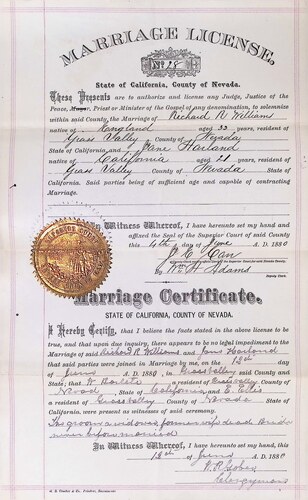 MARRIAGE LICENSE,
No 28
State of California, County of Nevada.
These Presents are to authorize and license any Judge, Justice of the
Peace, Mayor, Priest or Minister of the Gospel of any denomination, to solemnize
within said County, the Marriage of Richard R Williams
native of England aged 33 years, resident of
Grass Valley County of Nevada
State of California and Jane Harland
native of California aged 21 years, resident of
Grass Valley County of Nevada State of
California. Said parties being of sufficient age and capable of contracting
Marriage.
Witness Whereof, I have hereunto set my hand and
affixed the Seal of the Superior Court of said County
this 4th day of June A. D. 1880
By Wm H Adams
Deputy Clerk.
Marriage Certificate.
STATE OF CALIFORNIA, COUNTY OF NEVADA.
I Hereby Certify, that I believe the facts stated in the above license to be
true, and that upon due inquiry, there appears to be no legal impediment to the
Marriage of said Richard R Williams and Jane Harland
that said parties were joined in Marriage by me, on the
day of June A. D. 1880 in Grass Valley said County and
State; that W a resident of Grass Valley
Nevad State of California and E Ellis
a resident of Grass Valley County of Nevada State of
California, were present as witnesses of said ceremony.
The groom a widower former wife dead
never before married
In Witness Whereof, I have hereunto set my hand, this
day of June A. D. 1880
Clergyman